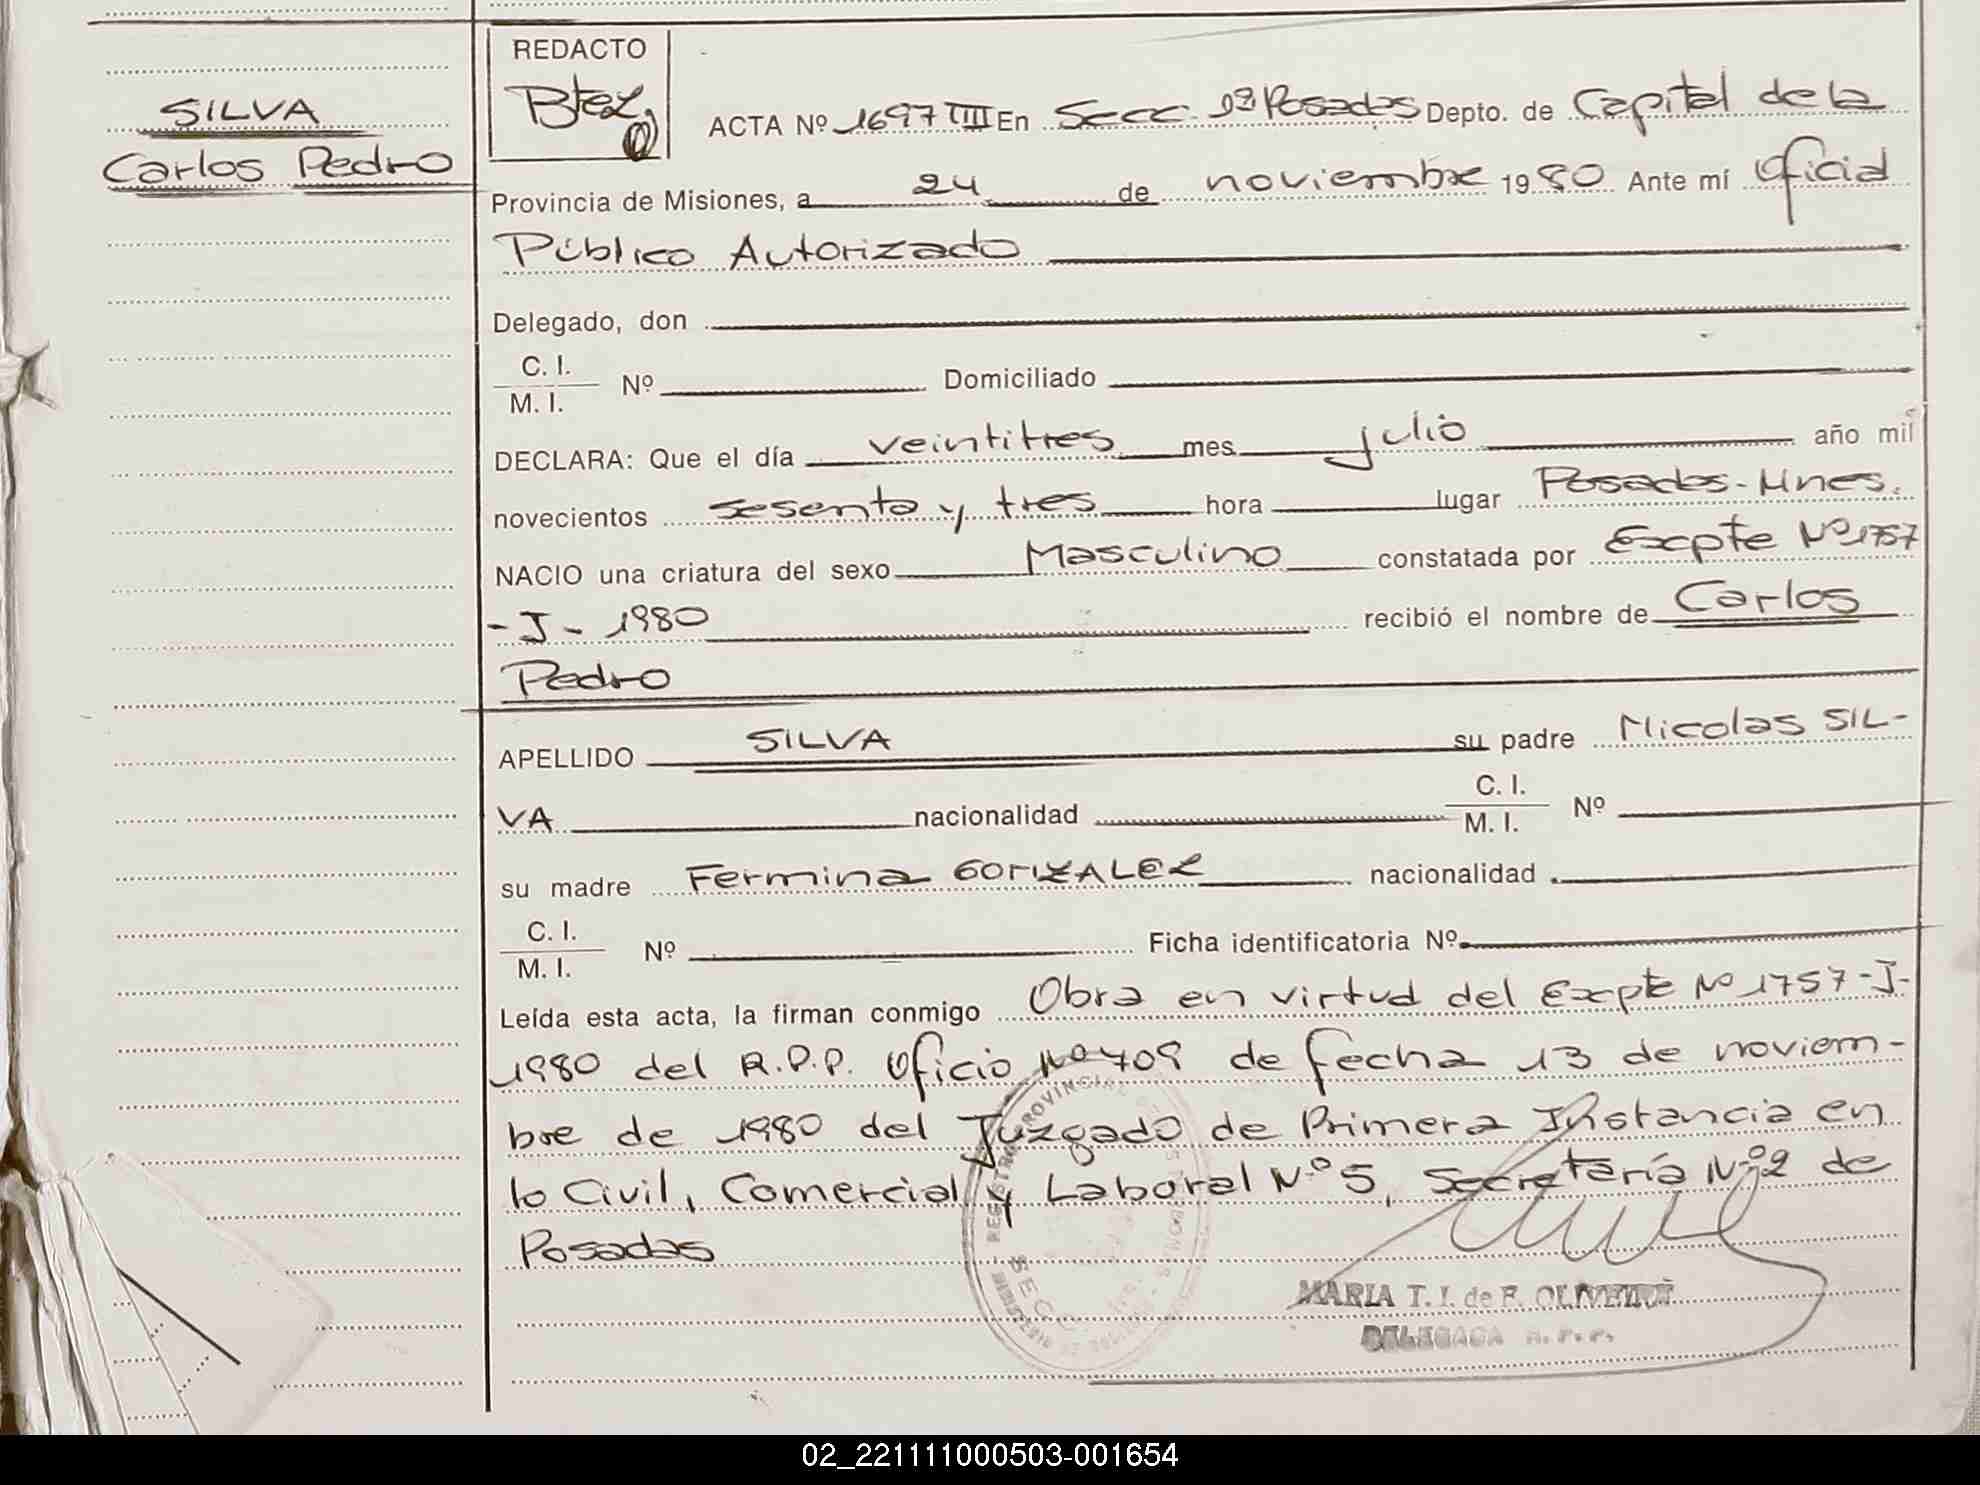 SILVA
Carlos Pedro
REDACTO
Btez
ACTA Nº 1697 TIII En Secc. 1ª Posadas Depto. de Capital de la
Provincia de Misiones, a 24 de noviembre 1980 Ante mí Oficial
Público Autorizado
Delegado, don
C. I.
M. I. Nº Domiciliado
DECLARA: Que el día veintitres mes julio año mil
novecientos sesenta y tres hora lugar Posadas-Mnes.
NACIO una criatura del sexo Masculino constatada por Expte Nº 1757
-J- 1980 recibió el nombre de Carlos
Pedro
APELLIDO SILVA su padre Nicolas SIL-
VA nacionalidad C. I.
M. I. Nº
su madre Fermina GONZALEZ nacionalidad
C. I.
M. I. Nº Ficha identificatoria Nº
Leída esta acta, la firman conmigo Obra en virtud del Expte Nº 1757-J-
1980 del R.P.P. Oficio Nº 709 de fecha 13 de noviem-
bre de 1980 del Juzgado de Primera Instancia en
lo Civil, Comercial y Laboral Nº 5, Secretaría Nº 2 de
Posadas
REGISTRO PROVINCIAL
MINISTERIO DE
SECC.
MARIA T. I. de F. OLIVEIRA
DELEGADA R. P. P.
02_221111000503-001654